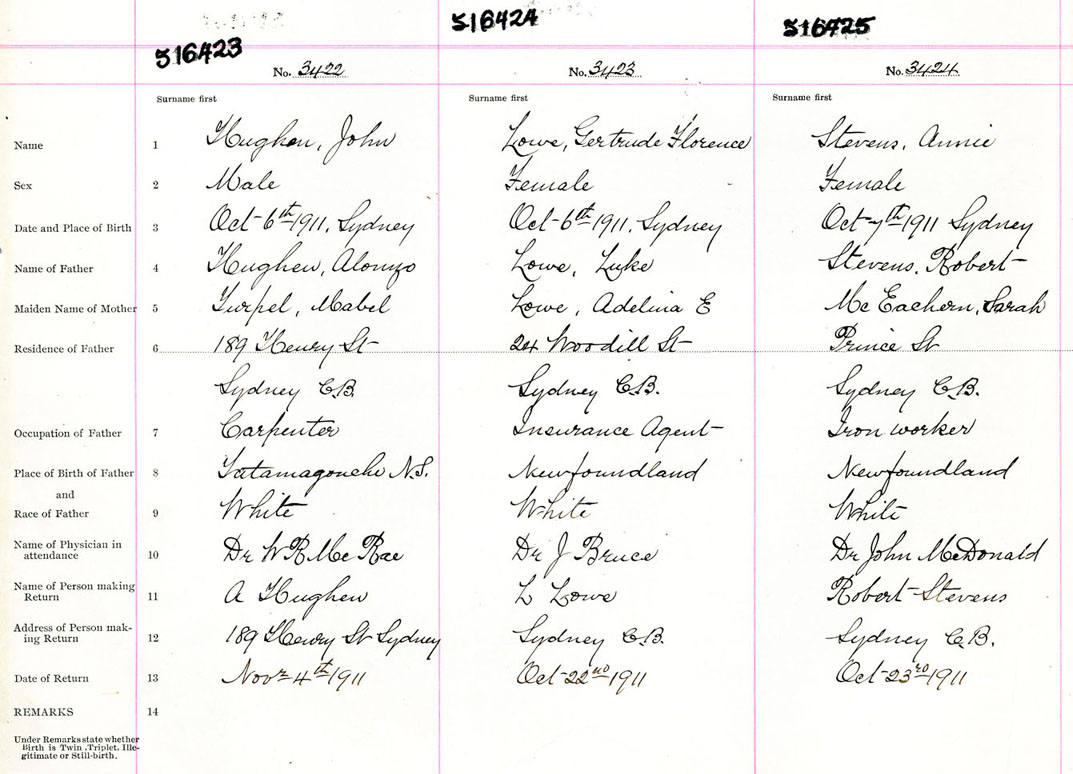 516423 516424 516425
No. 3422 No. 3423 No. 3424
Surname first Surname first Surname first
Name 1 Hughen, John Lowe, Gertrude Florence Stevens, Annie
Sex 2 Male Female Female
Date and Place of Birth 3 Oct 6th 1911, Sydney Oct 6th 1911, Sydney Oct 7th 1911 Sydney
Name of Father 4 Hughen, Alonzo Lowe, Luke Stevens, Robert
Maiden Name of Mother 5 Turpel, Mabel Lowe, Adelina E McEachern, Sarah
Residence of Father 6 189 Henry St 24 Woodill St Prince St
Sydney C.B. Sydney C.B. Sydney C.B.
Occupation of Father 7 Carpenter Insurance Agent Iron worker
Place of Birth of Father 8 Tatamagouche N.S. Newfoundland Newfoundland
and
Race of Father 9 White White White
Name of Physician in
attendance 10 Dr W R McRae Dr J Bruce Dr John McDonald
Name of Person making
Return 11 A Hughen L Lowe Robert Stevens
Address of Person mak-
ing Return 12 189 Henry St Sydney Sydney C.B. Sydney C.B.
Date of Return 13 Novr 4th 1911 Oct 22nd 1911 Oct 23rd 1911
REMARKS 14
Under Remarks state whether
Birth is Twin, Triplet, Ille-
gitimate or Still-birth.